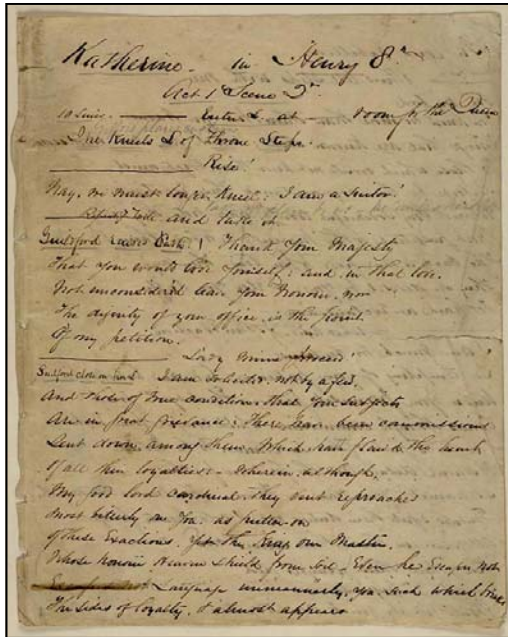 Katherine in Henry 8th
Act 1 Scene 2d
10 Lines. Enters L. at room for the Queen
She Kneels L of Throne Steps.
Rise!
Nay, we must longer Kneel: I am a Suitor!
and take it
Thank Your Majesty
That you would love Yourself: and in that love.
Not unconsidered leave Your Honour, nor
The dignity of your office, is the point
Of my petition.
Lady mine proceed!
I am Solicited, not by a few,
And those of true condition, that Your Subjects
Are in great grievance: There have been commissions
Sent down among them, Which hath flaw'd the heart
Of all their loyalties:- Wherein, although,
My good lord cardinal, they vent reproaches
Most bitterly on You: as putter-on
Of these Exactions, Yet the King our Master,
Whose honour Heaven Shield from Soil - Even he Escapes not
Language unmannerly, Yea, Such which breaks
The Sides of loyalty, & almost appears